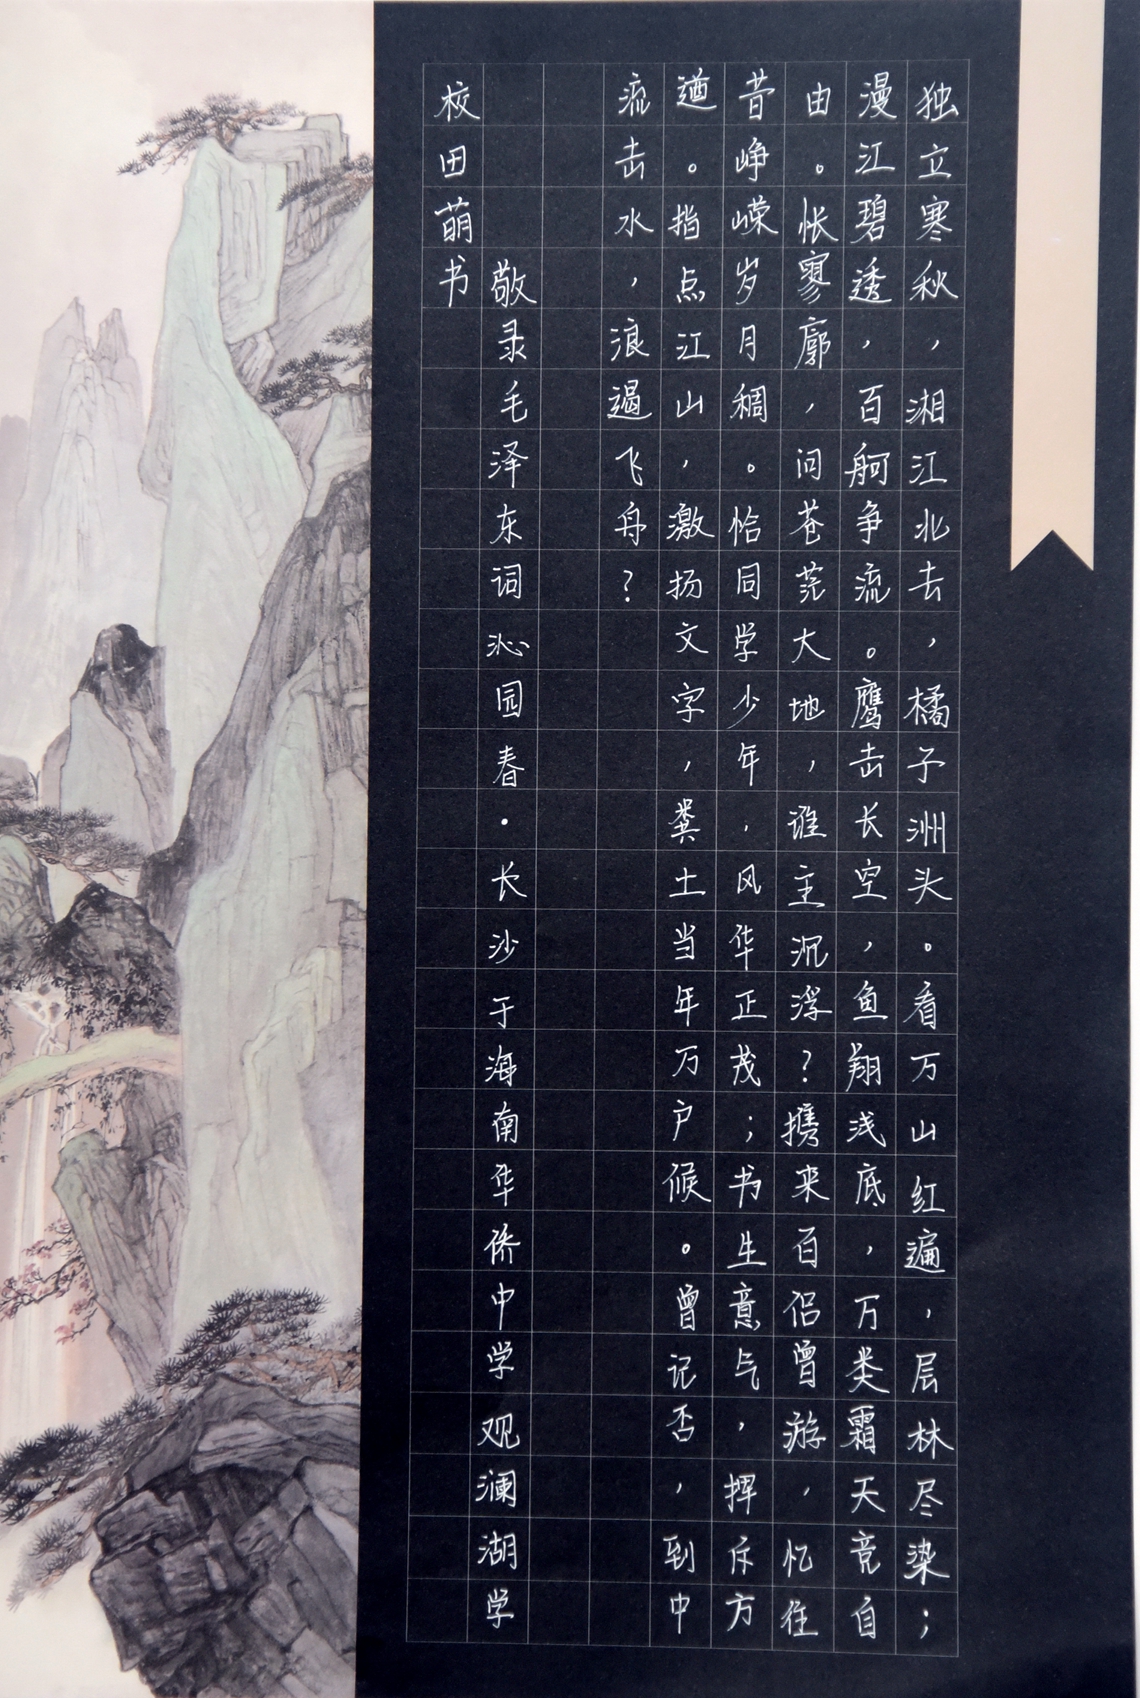 独立寒秋，湘江北去，橘子洲头。看万山红遍，层林尽染；
漫江碧透，百舸争流。鹰击长空，鱼翔浅底，万类霜天竞自
由。怅寥廓，问苍茫大地，谁主沉浮？携来百侣曾游，忆往
昔峥嵘岁月稠。恰同学少年，风华正茂；书生意气，挥斥方
遒。指点江山，激扬文字，粪土当年万户候。曾记否，到中
流击水，浪遏飞舟？
敬录毛泽东词沁园春·长沙于海南华侨中学观澜湖学
校田萌书